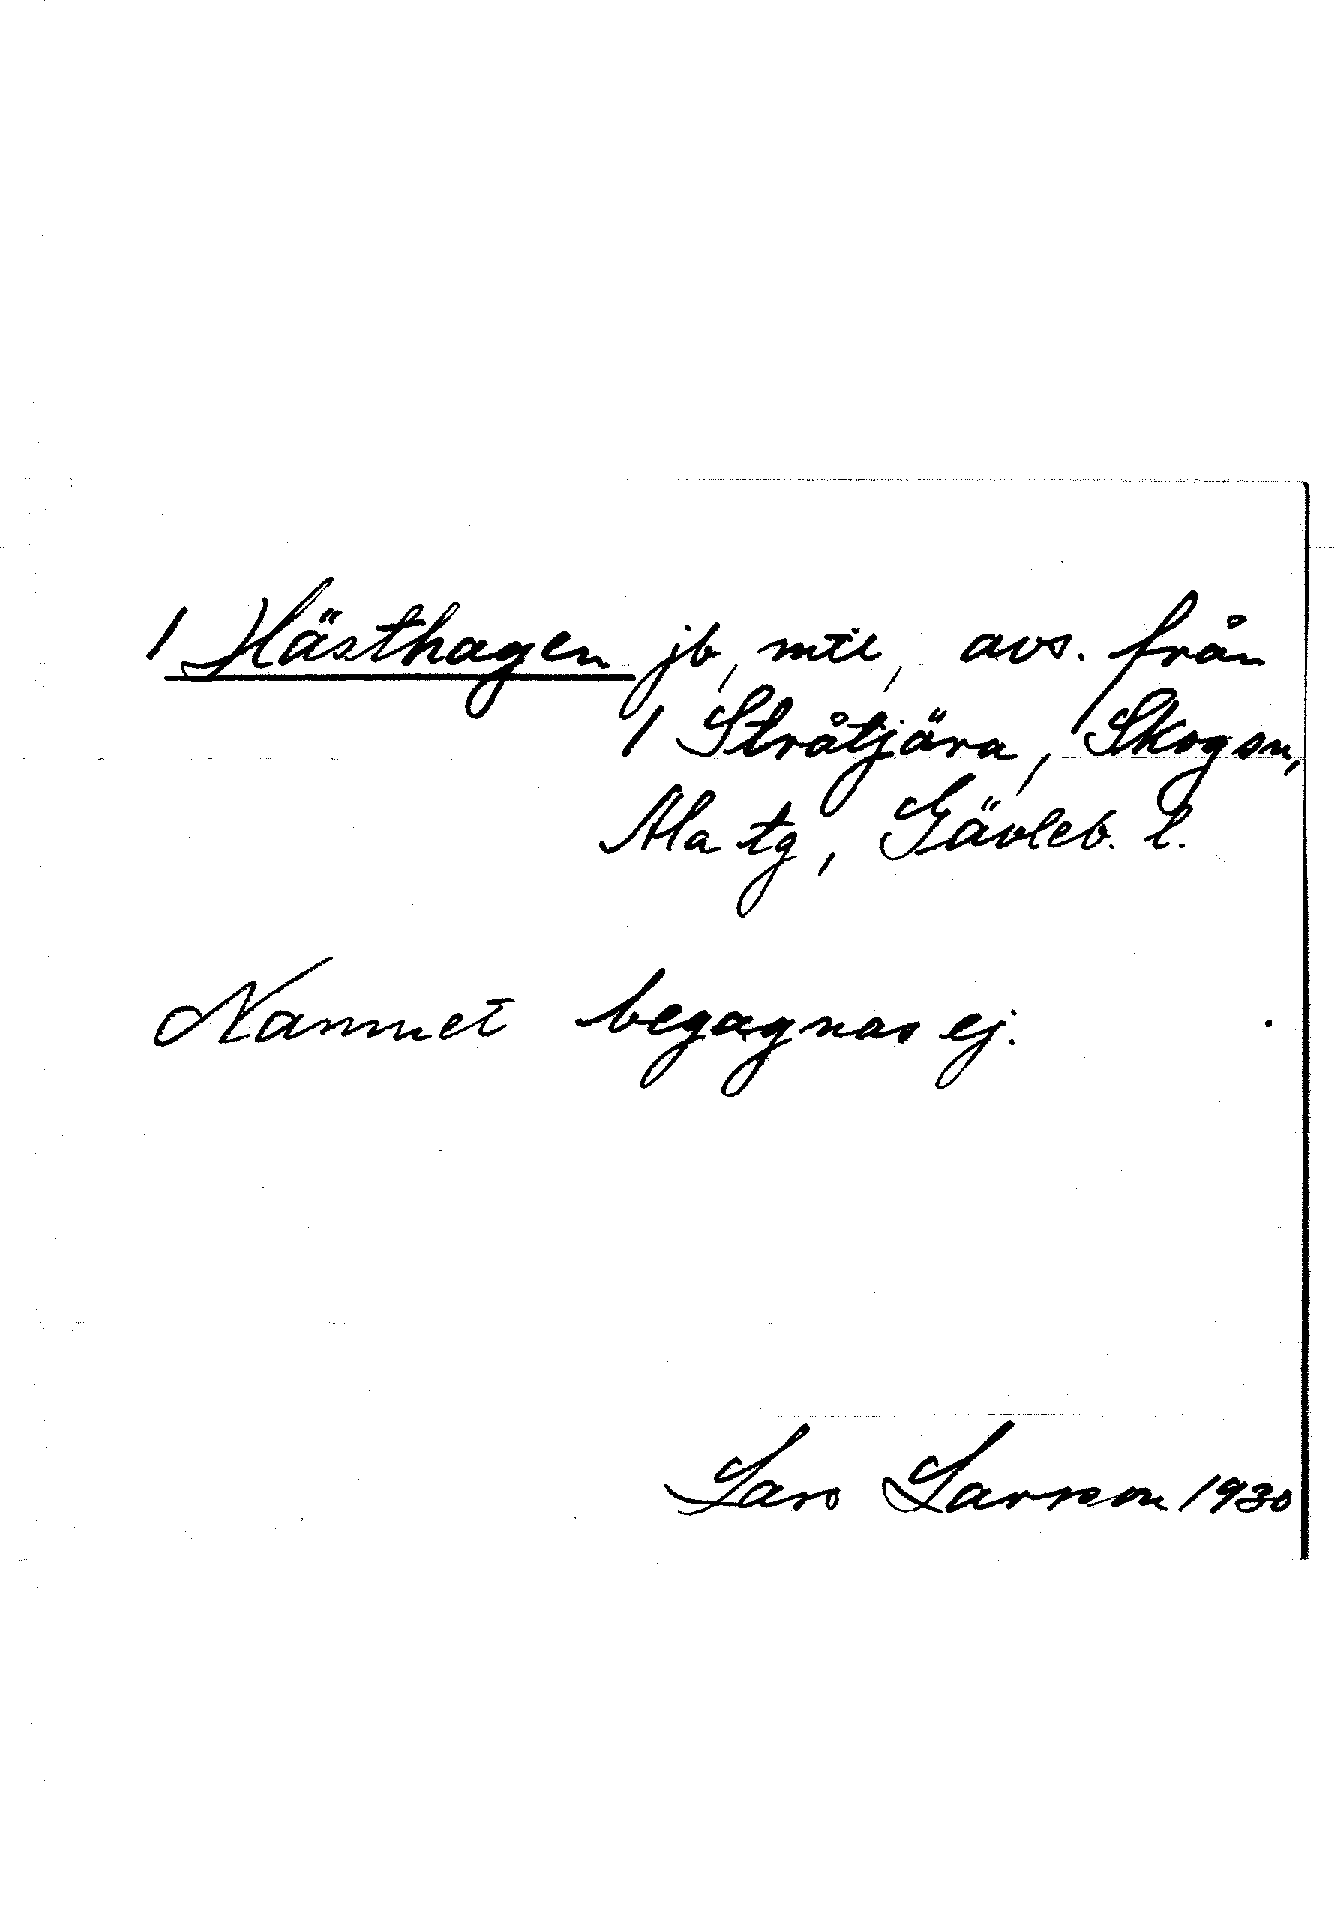 1 Hästhagen jb, mtl, avs. från
1 Stråtjära, Skogsn,
Ala tg, Gävleb. l.
Namnet begagnas ej.
Lars Larsson 1930